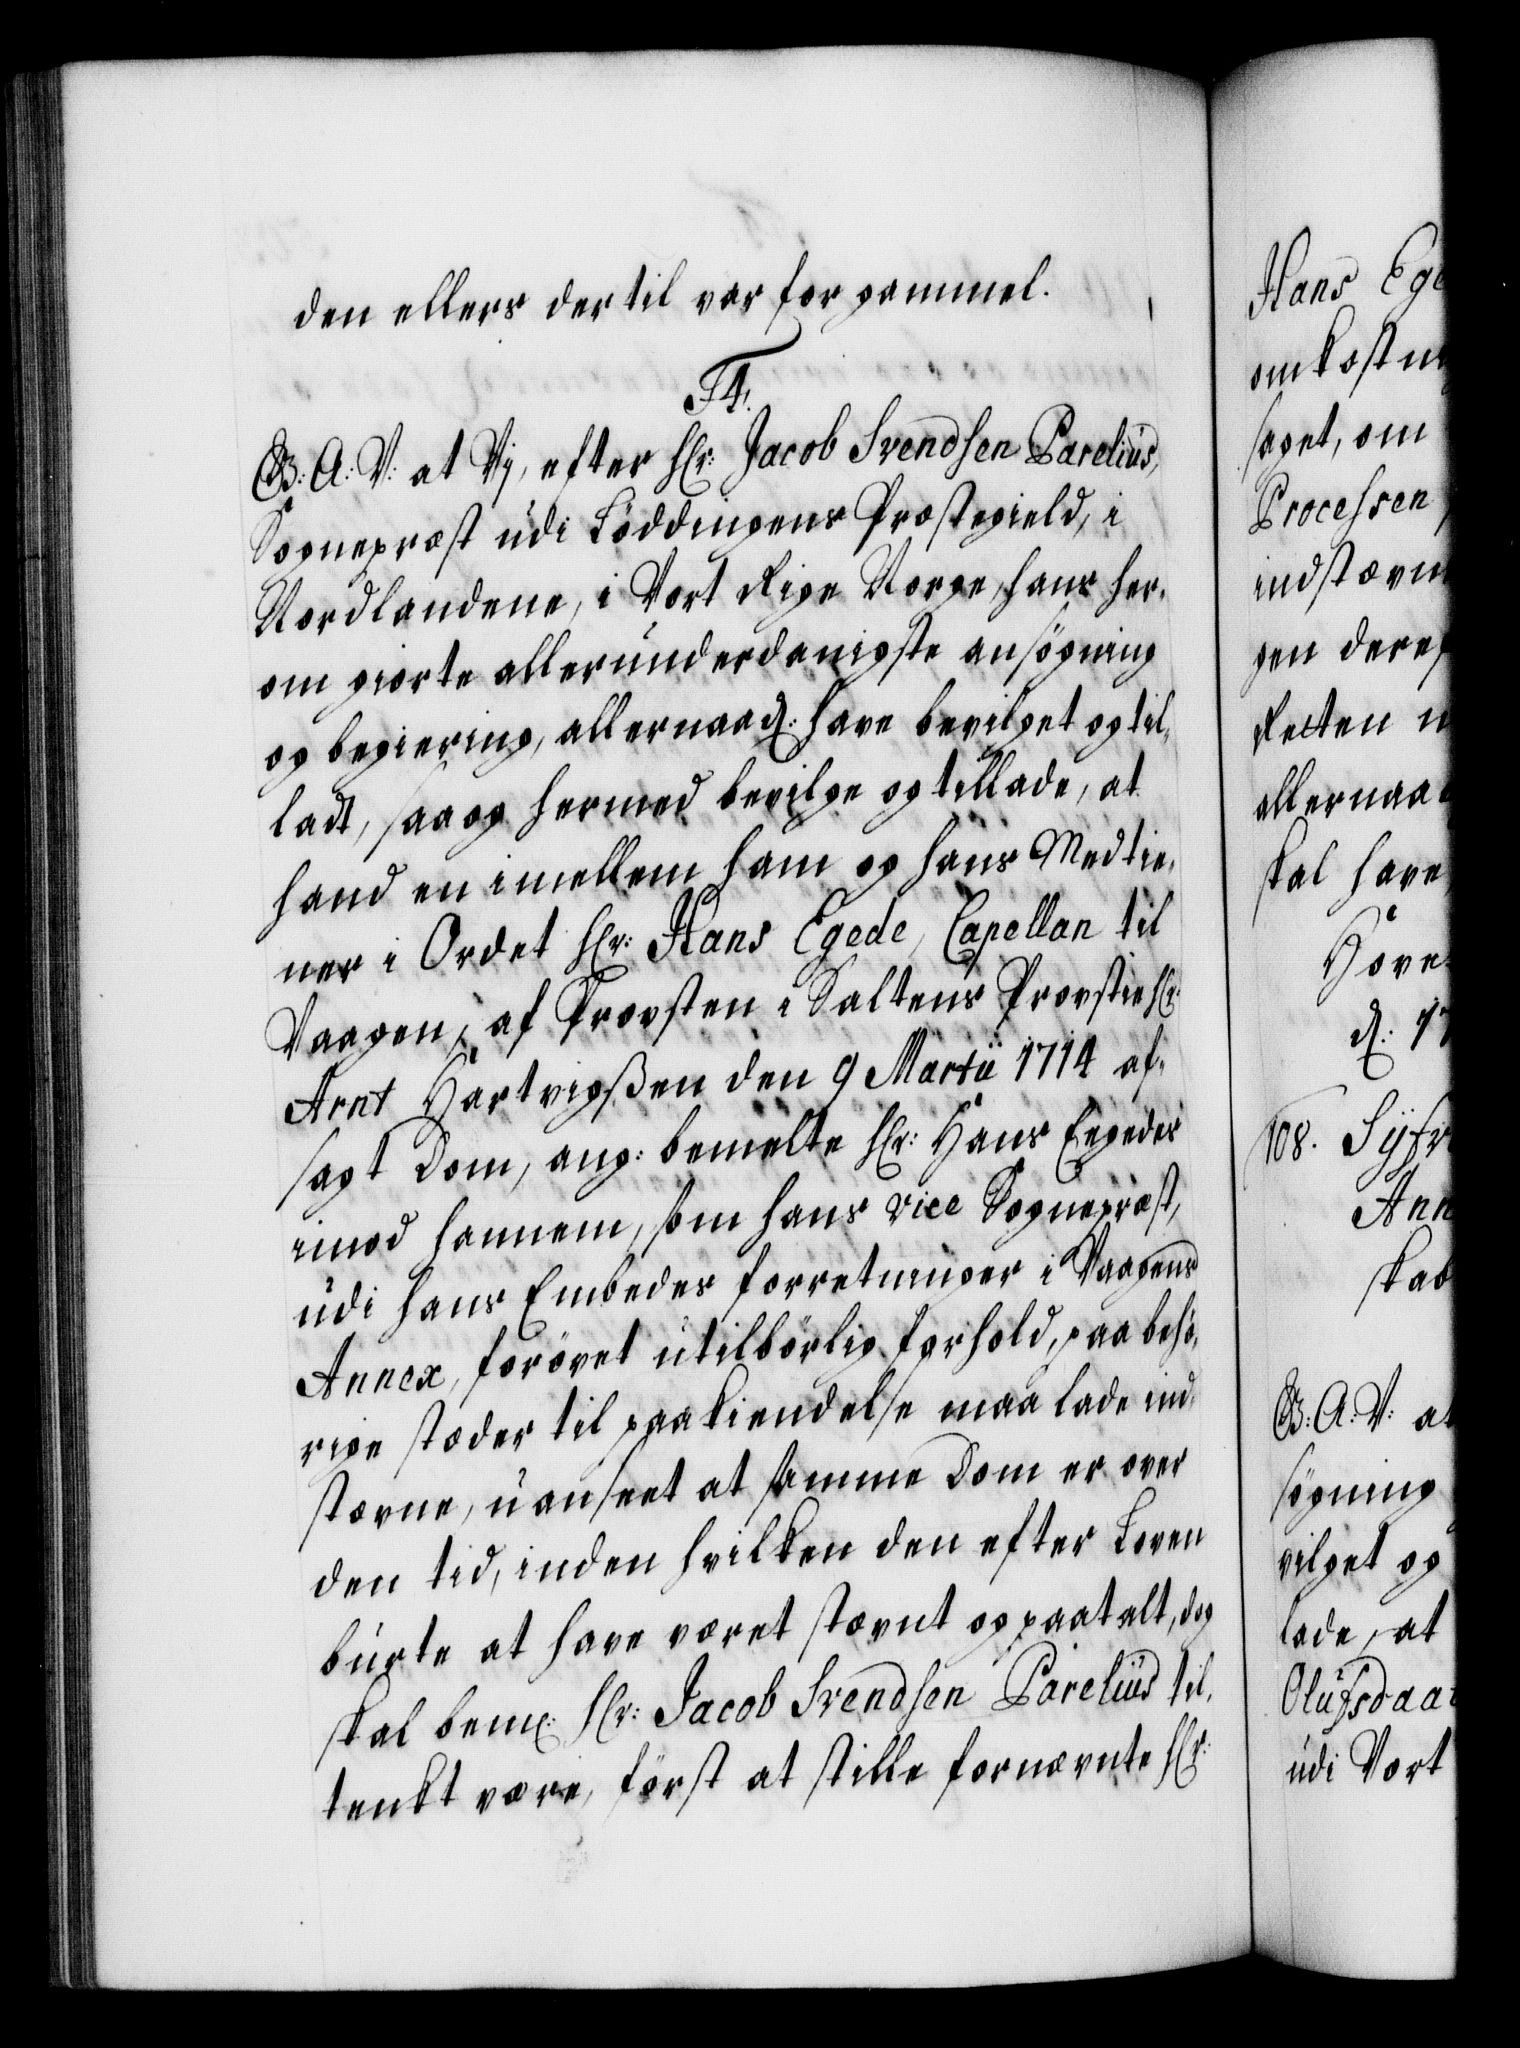 den ellers dertil var for gammel.
F4.
G: A: V: at Vj, efter Hr: Jacob Svendsen Parelius,
Sognepræst udi Löddingens Præstegield, i
Nordlandene, i Vort Rige Norge, hans her¬
om giorte allerunderdanigste ansögning
og begiering, allernaadt: have bevilget og til¬
ladt, saa og hermed bevilge og tillade, at
hand en imellem ham og hans Medtie¬
ner i Ordet Hr: Hans Egede, Capellan til
Vaagen, af Provsten i Saltens Provstie Hr:
Arnt Hartvigßen den 9 Martii 1714 af¬
sagt Dom, ang: bemelte Hr: Hans Egedes
imod hannem, som hans vice Sognepræst,
udi hans Embedes forretninger i Vaagens
Annex, forøvet utilbörlig forhold, paa behö¬
rige stæder til paakiendelse maa lade ind¬
stævne, uanseet at samme Dom er over
den tid, inden hvilken den efter Loven
burte at have været stævnt og paatalt, dog
skal bemt: Hr: Jacob Svendsen Parelius til¬
tenkt være, först at stille fornævnte Hr:
Hans Ege
omkostn
saget, om
Processen
indstævn
gen deref
Retten
allernaa
skal have
Have
d: 17
108. Syfr
Ann
skab
G: A: V: at
sögning
vilget og
lade, at
Olufsdaat
udi Vort